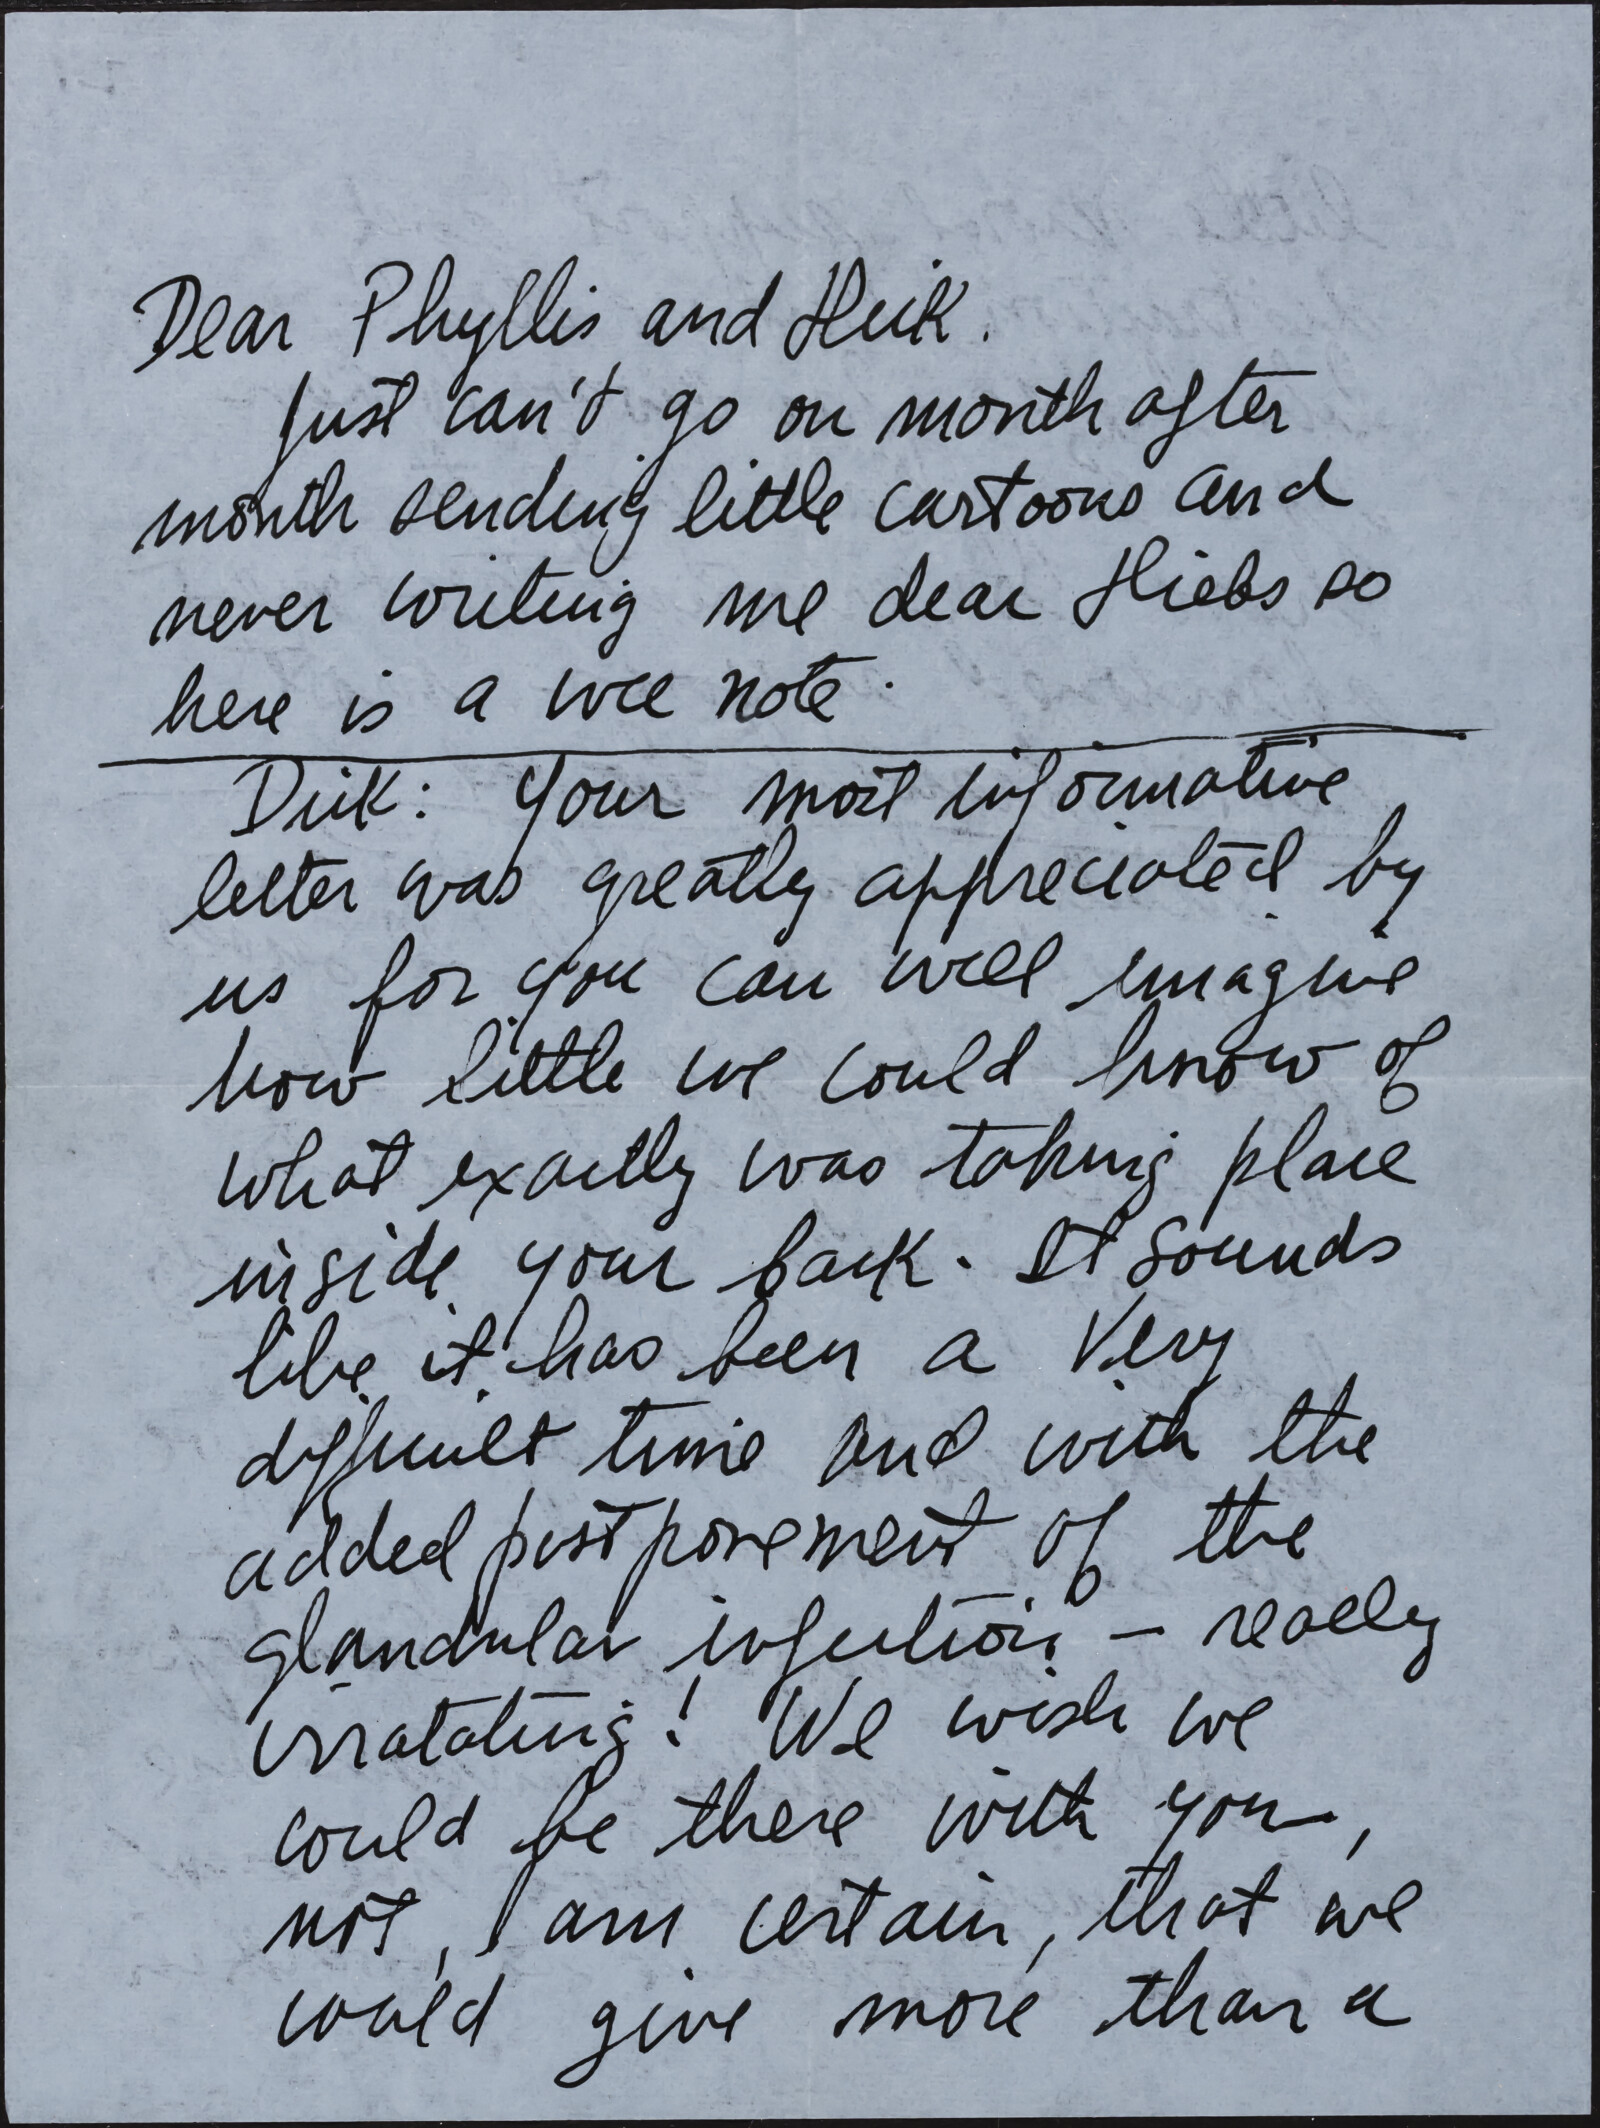 Dear Phyllis and Huik.
Just can't go on month after
month sending little cartoons and
never writing me dear Hiebs so
here is a wee note.
Dick: Your most informative
letter was greatly appreciated by
us for you can well imagine
how little we could know of
what exactly was taking place
inside your back. It sounds
like it has been a very
difficult time and with the
added postponement of the
glandular infection – really
irratating! We wish we
could be there with you,
not, I am certain, that we
could give more than a